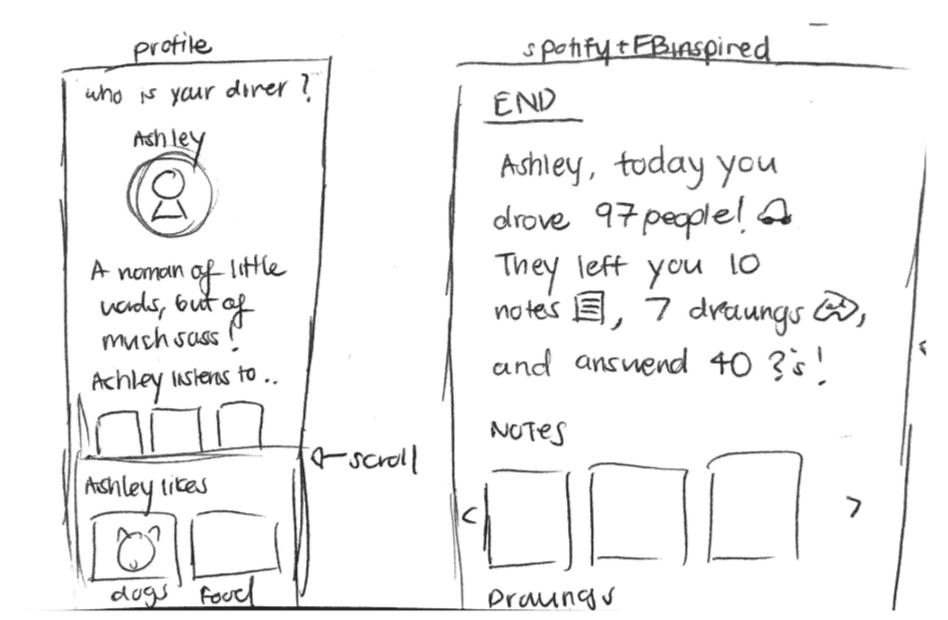 profile
who is your driver?
Ashley
A woman of little
words, but of
much sass!
Ashley listens to..
scroll
Ashley likes
dogs food
spotify+FB inspired
END
Ashley, today you
drove 97 people!
They left you 10
notes, 7 drawings,
and answered 40 ?'s!
NOTES
< >
Drawings